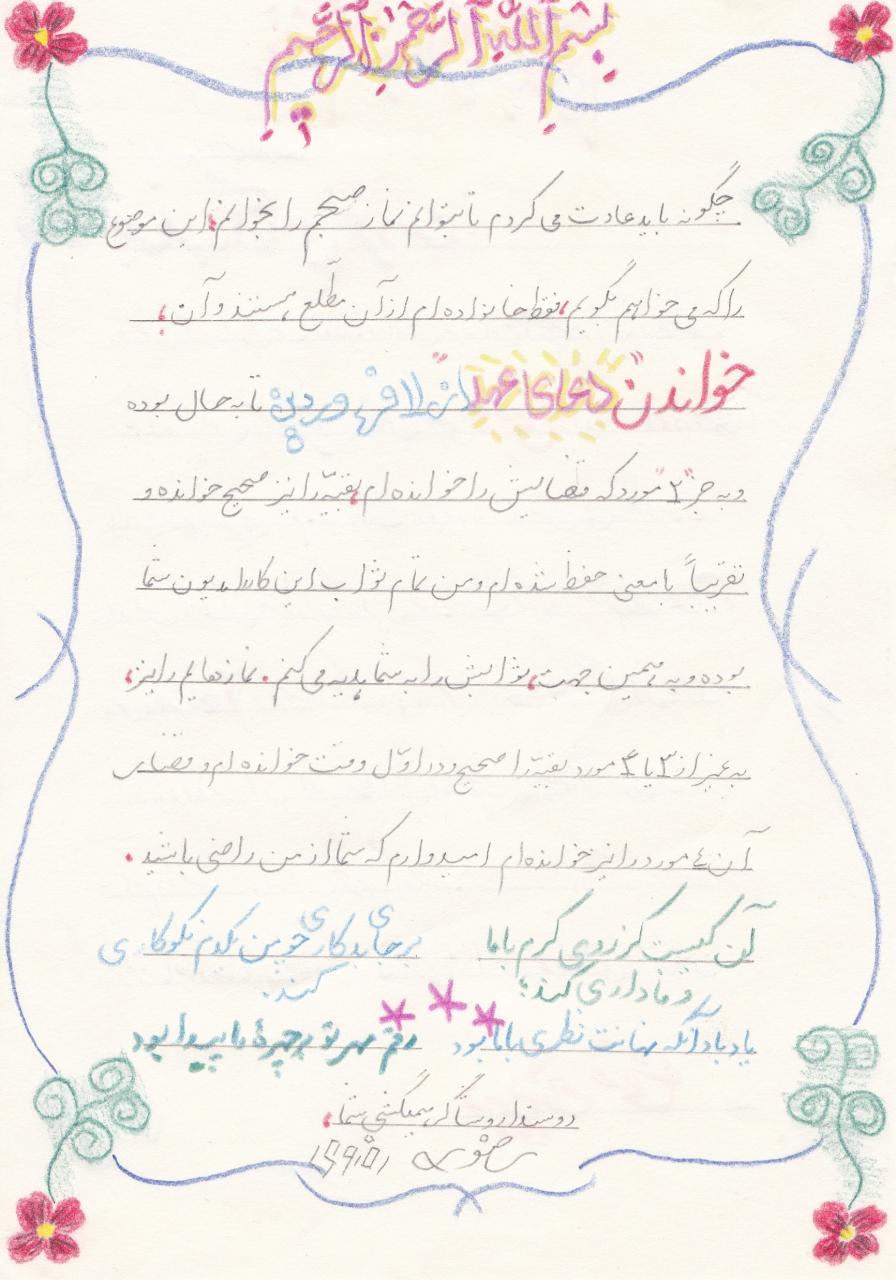 بِسْمِ اللّٰهِ الرَّحْمٰنِ الرَّحیمِ
چگونه باید عادت می کردم تا بتوانم نماز صبحم را بخوانم؛ این موضوع
را که می خواهم بگویم، فقط خانواده ام از آن مطّلع هستند و آن؛
خواندن دعای عهد از ۱۷ فروردین تا به حال بوده
و به جز "۲" مورد که قضایش را خوانده ام، بقیّه را نیز صحیح خوانده و
تقریباً با معنی حفظ شده ام و من تمام ثواب این کار را مدیون شما
بوده و به همین جهت، ثوابش را به شما هدیه می کنم. نمازهایم را نیز،
به غیر از ۳ یا ۴ مورد بقیّه را صحیح و در اوّل وقت خوانده ام و قضای
آن ۴ مورد را نیز خوانده ام امیدوارم که شما از من راضی باشید.
آن کیست کز روی کرم با ما وفاداری کند؛ بر جای بدکاری چو من یکدم نکوکاری کند.
یاد باد آنکه نهانت نظری با ما بود رقم مهر تو بر چهرهٔ ما پیدا بود
دوستدار و شاگرد همیشگی شما،